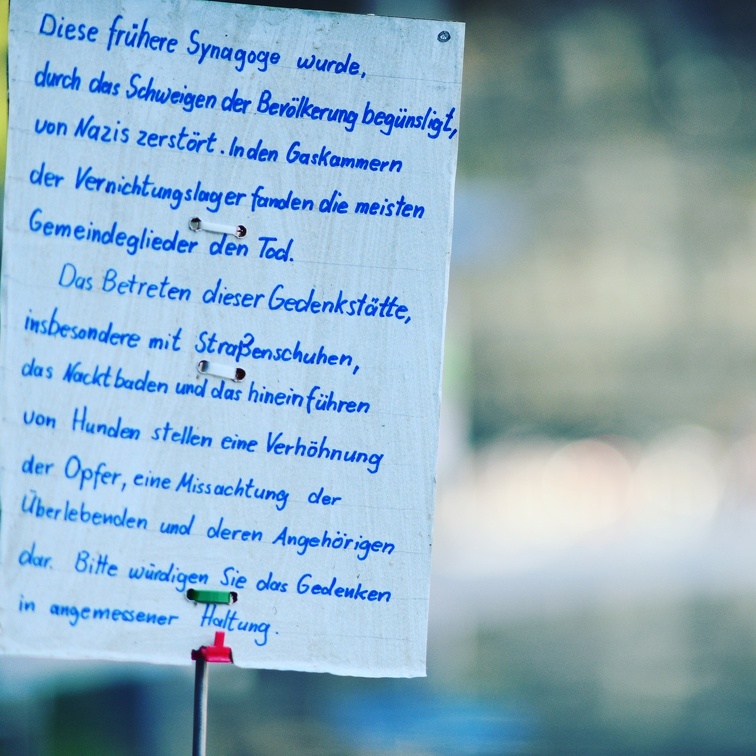 Diese frühere Synagoge wurde,
durch das Schweigen der Bevölkerung begünsligt,
von Nazis zerstört. In den Gaskammern
der Vernichtungslager fanden die meisten
Gemeindeglieder den Tod.
Das Betreten dieser Gedenkstätte,
insbesondere mit Straßenschuhen,
das Nacktbaden und das hineinführen
von Hunden stellen eine Verhöhnung
der Opfer, eine Missachtung der
Überlebenden und deren Angehörigen
dar. Bitte würdigen Sie das Gedenken
in angemessener Haltung.